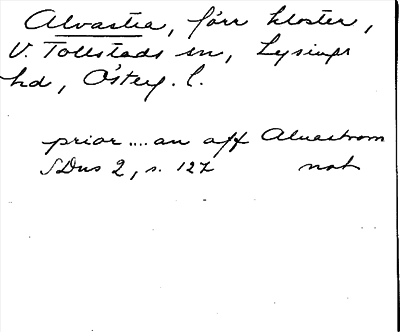 Alvastra, förr kloster,
V. Tollstads sn, Lysings
hd, Österg. l.
prior .... an aff Aluastrom
SDns 2, s. 127 not